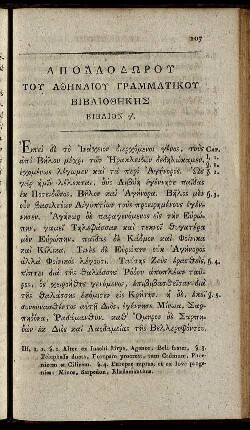 107
ΑΠΟΛΛΟΔΩΡΟΥ
ΤΟΥ ΑΘΗΝΑΙΟΥ ΓΡΑΜΜΑΤΙΚΟΥ
ΒΙΒΛΙΟΘΗΚΗΣ
ΒΙΒΛΙΟΝ γ.
Ἐπεὶ δὲ τὸ Ἰνάχειον διερχόμενοι γένος, τοὺς Cap.
ἀπὸ Βήλου μέχρι τῶν Ἡρακλειδῶν δεδηλώκαμεν, I. 1.
ἐχομένως λέγωμεν καὶ τὰ περὶ Ἀγήνορος. Ὡς
γὰρ ἡμῖν λέλεκται, δύο Λιβύη ἐγέννησε παῖδας
ἐκ Ποσειδῶνος, Βῆλον καὶ Ἀγήνορα. Βῆλος μὲν
οὖν βασιλεύων Αἰγυπτίων τοὺς προειρημένους ἐγέν-
νησεν. Ἀγήνωρ δὲ παραγενόμενος εἰς τὴν Εὐρώ-
πην, γαμεῖ Τηλέφασσαν καὶ τεκνοῖ θυγατέρα
μὲν Εὐρώπην, παῖδας δὲ Κάδμον καὶ Φοίνικα
καὶ Κίλικα. Τινὲς δὲ Εὐρώπην οὐκ Ἀγήνορος
ἀλλὰ Φοίνικος λέγουσι. Ταύτης Ζεὺς ἐρασθεὶς, §. 4.
διὰ τῆς θαλάσσης Ῥόδου ἀποπλέων ταῦ-
ρος χειροήθης γενόμενος, ἐπιβιβασθεῖσαν διὰ
τῆς θαλάσσης ἐκόμισεν εἰς Κρήτην. ἡ δὲ, ἐκεῖ §. 5.
συνευνασθέντος αὐτῇ Διὸς, ἐγέννησε Μίνωα, Σαρ-
πηδόνα, Ῥαδάμανθυν. καθ' Ὅμηρον δὲ Σαρπη-
δὼν ἐκ Διὸς καὶ Λαοδαμείας τῆς Βελλεροφόντου.
III, 1. 2. §. 2. Alter ex Inachi stirpe, Agenor, Beli frater, §. 3.
Telephassa ducta, Europam procreat, tum Cadmum, Phoe-
nicem et Cilicem. §. 4. Europae raptus, et ex Iove proge-
nies: Minos, Sarpedon, Rhadamanthus.